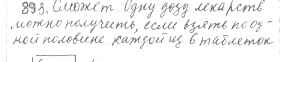 893. Сможет одну дозу лекарств
можно получить, если взять по од-
ной половине каждой из 6 таблеток